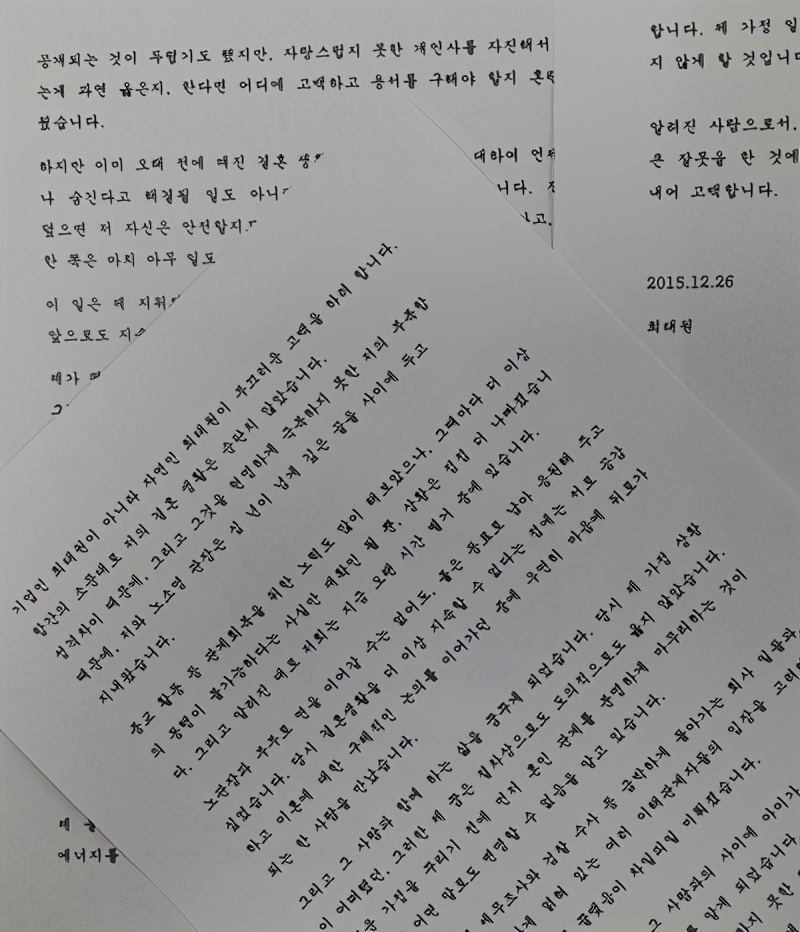 공개되는 것이 두렵기도 했지만, 자랑스럽지 못한 개인사를 자진해서
는게 과연 옳은지, 한다면 어디에 고백하고 용서를 구해야 할지 혼란
웠습니다.
하지만 이미 오래 전에 깨진 결혼 생
나 숨긴다고 해결될 일도 아니
덮으면 저 자신은 안전할지
한 쪽은 마치 아무 일도
이 일은 제 지위
앞으로도 지
제가
그
대하여 언제
니다.
고,
제
에너지를
합니다. 제 가정 일
지 않게 할 것입니다
알려진 사람으로서,
큰 잘못을 한 것에
내어 고백합니다.
2015.12.26
최태원
기업인 최태원이 아니라 자연인 최태원이 부끄러운 고백을 하려 합니다.
항간의 소문대로 저의 결혼 생활은 순탄치 않았습니다.
성격차이 때문에, 그리고 그것을 현명하게 극복하지 못한 저의 부족함
때문에, 저와 노소영 관장은 십 년이 넘게 깊은 골을 사이에 두고
지내왔습니다.
종교 활동 등 관계회복을 위한 노력도 많이 해보았으나, 그때마다 더 이상
의 동행이 불가능하다는 사실만 재확인 될 뿐, 상황은 점점 더 나빠졌습니
다. 그리고 알려진 대로 저희는 지금 오랜 시간 별거 중에 있습니다.
노관장과 부부로 연을 이어갈 수는 없어도, 좋은 동료로 남아 응원해 주고
싶었습니다. 당시 결혼생활을 더 이상 지속할 수 없다는 점에는 서로 공감
하고 이혼에 대한 구체적인 논의를 이어가던 중에 우연히 마음에 위로가
되는 한 사람을 만났습니다.
그리고 그 사람과 함께 하는 삶을 꿈꾸게 되었습니다. 당시 제 가정 상황
이 어떠했건, 그러한 제 꿈은 절차상으로도 도의적으로도 옳지 않았습니다.
운 가정을 꾸리기 전에 먼저 혼인 관계를 분명하게 마무리하는 것이
어떤 말로도 변명할 수 없음을 알고 있습니다.
세무조사와 검찰 수사 등 급박하게 돌아가는 회사 일들과,
게 얽혀 있는 여러 이해관계자들의 입장을 고려
매듭이 차일피일 미뤄졌습니다.
그 사람과의 사이에 아이가
를 알게 되었습니다.
하지 못한